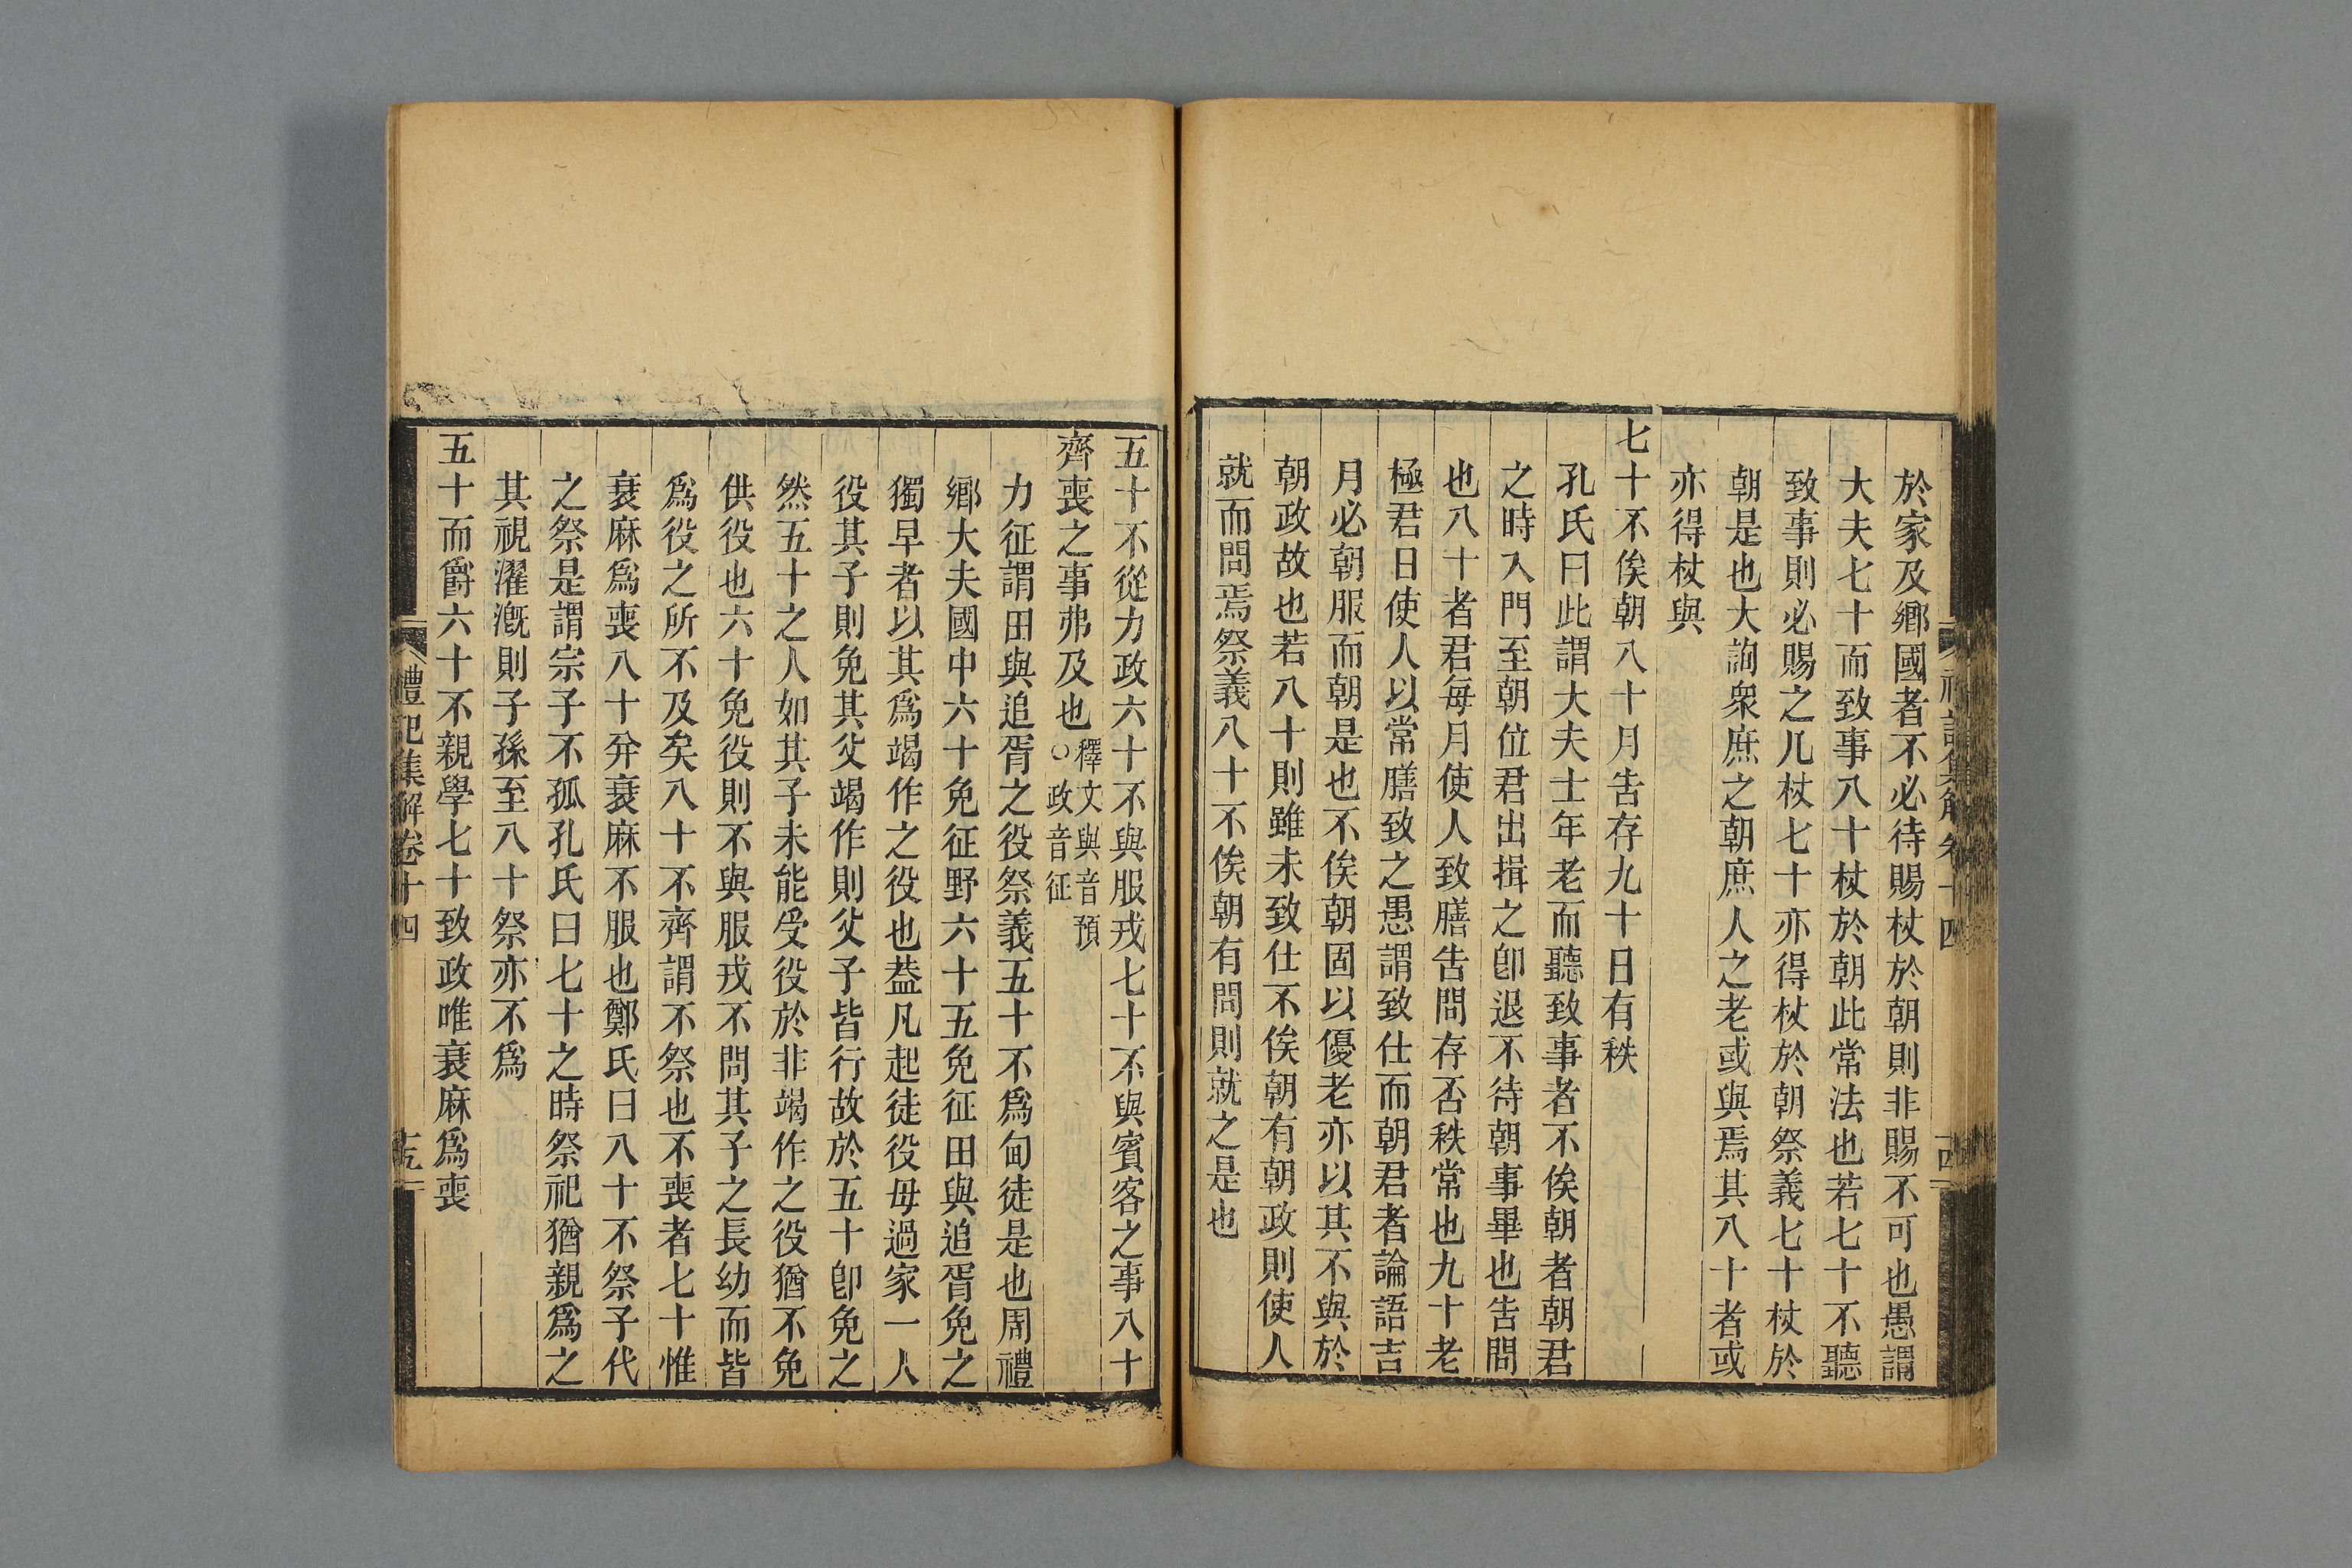 於家及鄉國者不必待賜杖於朝則非賜不可也愚謂
大夫七十而致事八十杖於朝此常法也若七十不聽
致事則必賜之几杖七十亦得杖於朝祭義七十杖於
朝是也大詢衆庶之朝庶人之老或與焉其八十者或
亦得杖與
七十不俟朝八十月告存九十日有秩
孔氏曰此謂大夫士年老而聽致事者不俟朝者朝君
之時入門至朝位君出揖之卽退不待朝事畢也告問
也八十者君每月使人致膳告問存否秩常也九十老
極君日使人以常膳致之愚謂致仕而朝君者論語吉
月必朝服而朝是也不俟朝固以優老亦以其不與於
朝政故也若八十則雖未致仕不俟朝有朝政則使人
就而問焉祭義八十不俟朝有問則就之是也
五十不從力政六十不與服戎七十不與賓客之事八十
齊喪之事弗及也釋文與音預
○政音征
力征謂田與追胥之役祭義五十不爲甸徒是也周禮
鄉大夫國中六十免征野六十五免征田與追胥免之
獨早者以其爲竭作之役也葢凡起徒役毋過家一人
役其子則免其父竭作則父子皆行故於五十卽免之
然五十之人如其子未能受役於非竭作之役猶不免
供役也六十免役則不與服戎不問其子之長幼而皆
爲役之所不及矣八十不齊謂不祭也不喪者七十惟
衰麻爲喪八十幷衰麻不服也鄭氏曰八十不祭子代
之祭是謂宗子不孤孔氏曰七十之時祭祀猶親爲之
其視濯漑則子孫至八十祭亦不爲
五十而爵六十不親學七十致政唯衰麻爲喪
禮記集解卷十四